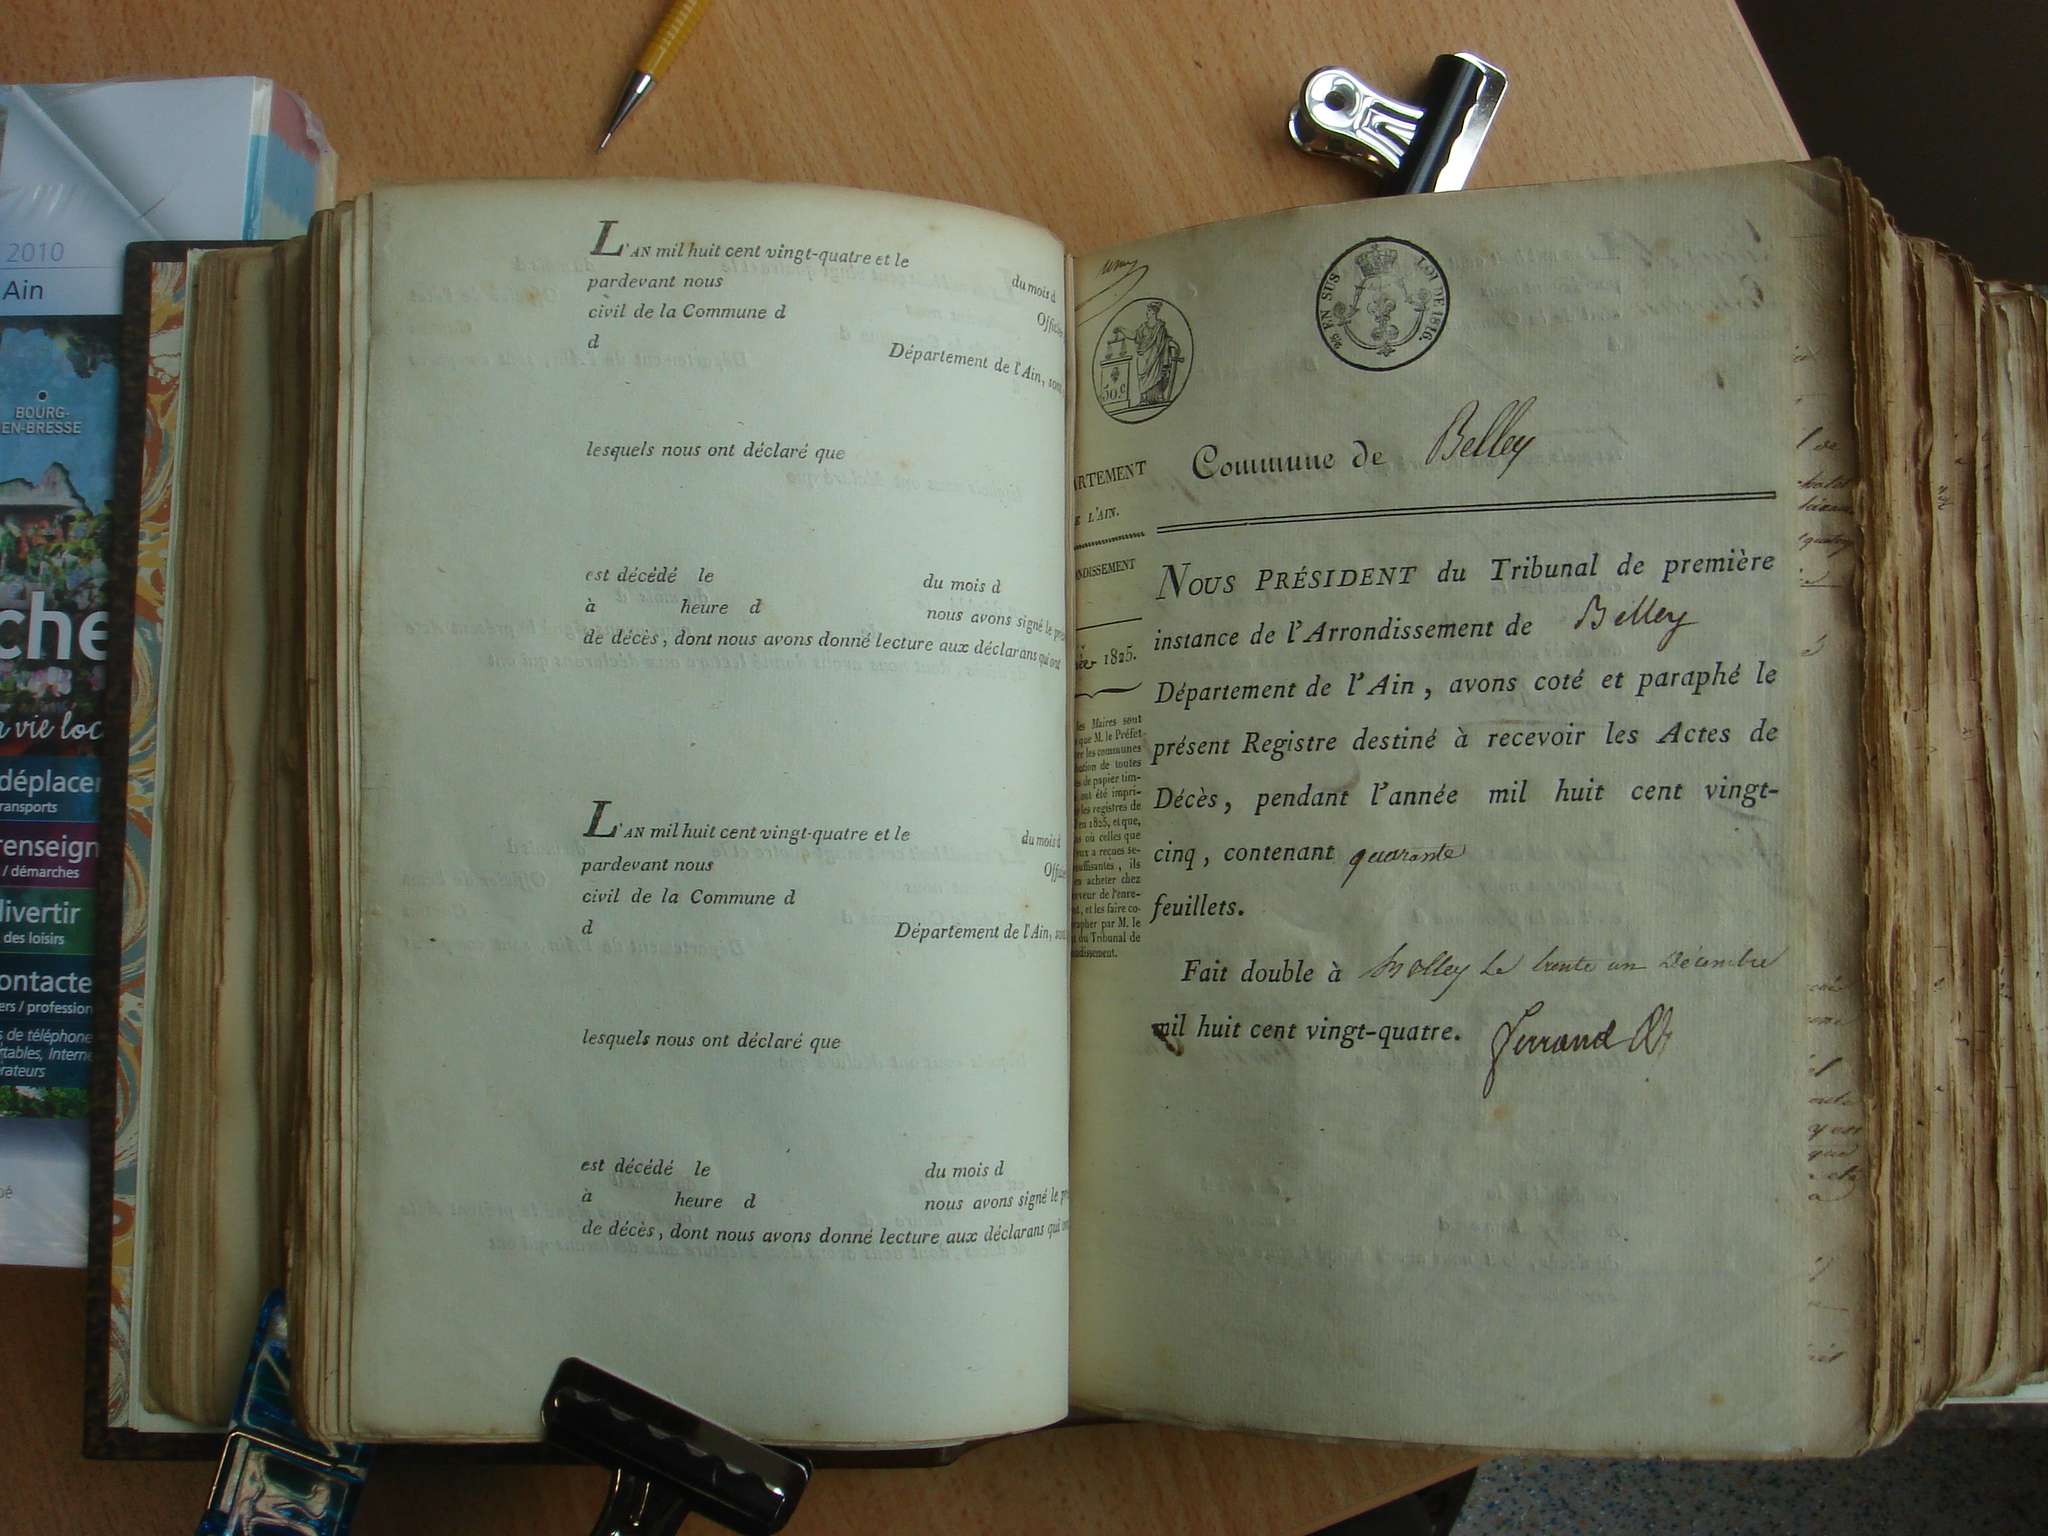 2010
Ain
BOURG-
EN-BRESSE
che
vie loc
déplacer
ransports
renseign
/ démarches
divertir
des loisirs
ontacte
ers / profession
s de téléphone
rtables, Interne
érateurs
L'AN mil huit cent vingt-quatre et le du mois d
pardevant nous Officier
civil de la Commune d
d Département de l'Ain, sont
lesquels nous ont déclaré que
est décédé le du mois d
à heure d nous avons signé le pré
de décès, dont nous avons donné lecture aux déclarans qui ont
L'AN mil huit cent vingt-quatre et le du mois d
pardevant nous Officie
civil de la Commune d
d Département de l'Ain, son
lesquels nous ont déclaré que
est décédé le du mois d
à heure d nous avons signé le pr
de décès, dont nous avons donné lecture aux déclarans qui on
EN SUS LOI DE 1816.
50.c
Commune de Belley
ARTEMENT
E L'AIN.
NDISSEMENT
1825.
les Maires sont
que M. le Préfet
re les communes
bution de toutes
s de papier tim-
ont été impri-
les registres de
en 1825, et que,
s où celles que
eux a reçues se-
suffisantes, ils
es acheter chez
eveur de l'enre-
nt, et les faire co-
rapher par M. le
t du Tribunal de
ndissement.
NOUS PRÉSIDENT du Tribunal de première
instance de l'Arrondissement de Belley
Département de l'Ain, avons coté et paraphé le
présent Registre destiné à recevoir les Actes de
Décès, pendant l'année mil huit cent vingt-
cinq, contenant quarante
feuillets.
Fait double à Belley le trente un Décembre
mil huit cent vingt-quatre. Ferrand